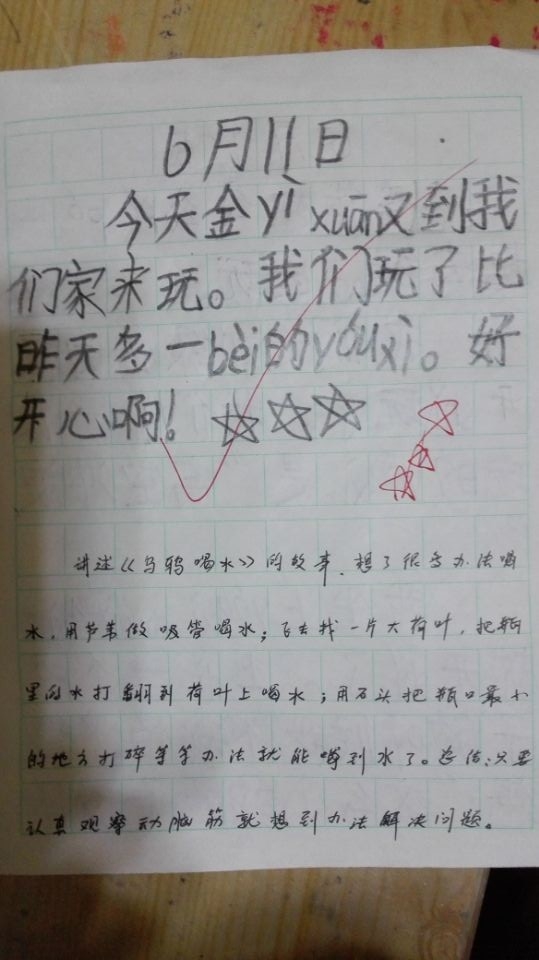 6月11日
今天金yì xuān又到我
们家来玩。我们玩了比
昨天多一bèi的yóuxì。好
开心啊!
讲述《乌鸦喝水》的故事，想了很多办法喝
水，用芦苇做吸管喝水；飞去找一片大荷叶，把瓶
里的水打翻到荷叶上喝水；用石头把瓶口最小
的地方打碎等等办法就能喝到水了。总结：只要
认真观察动脑筋就想到办法解决问题。